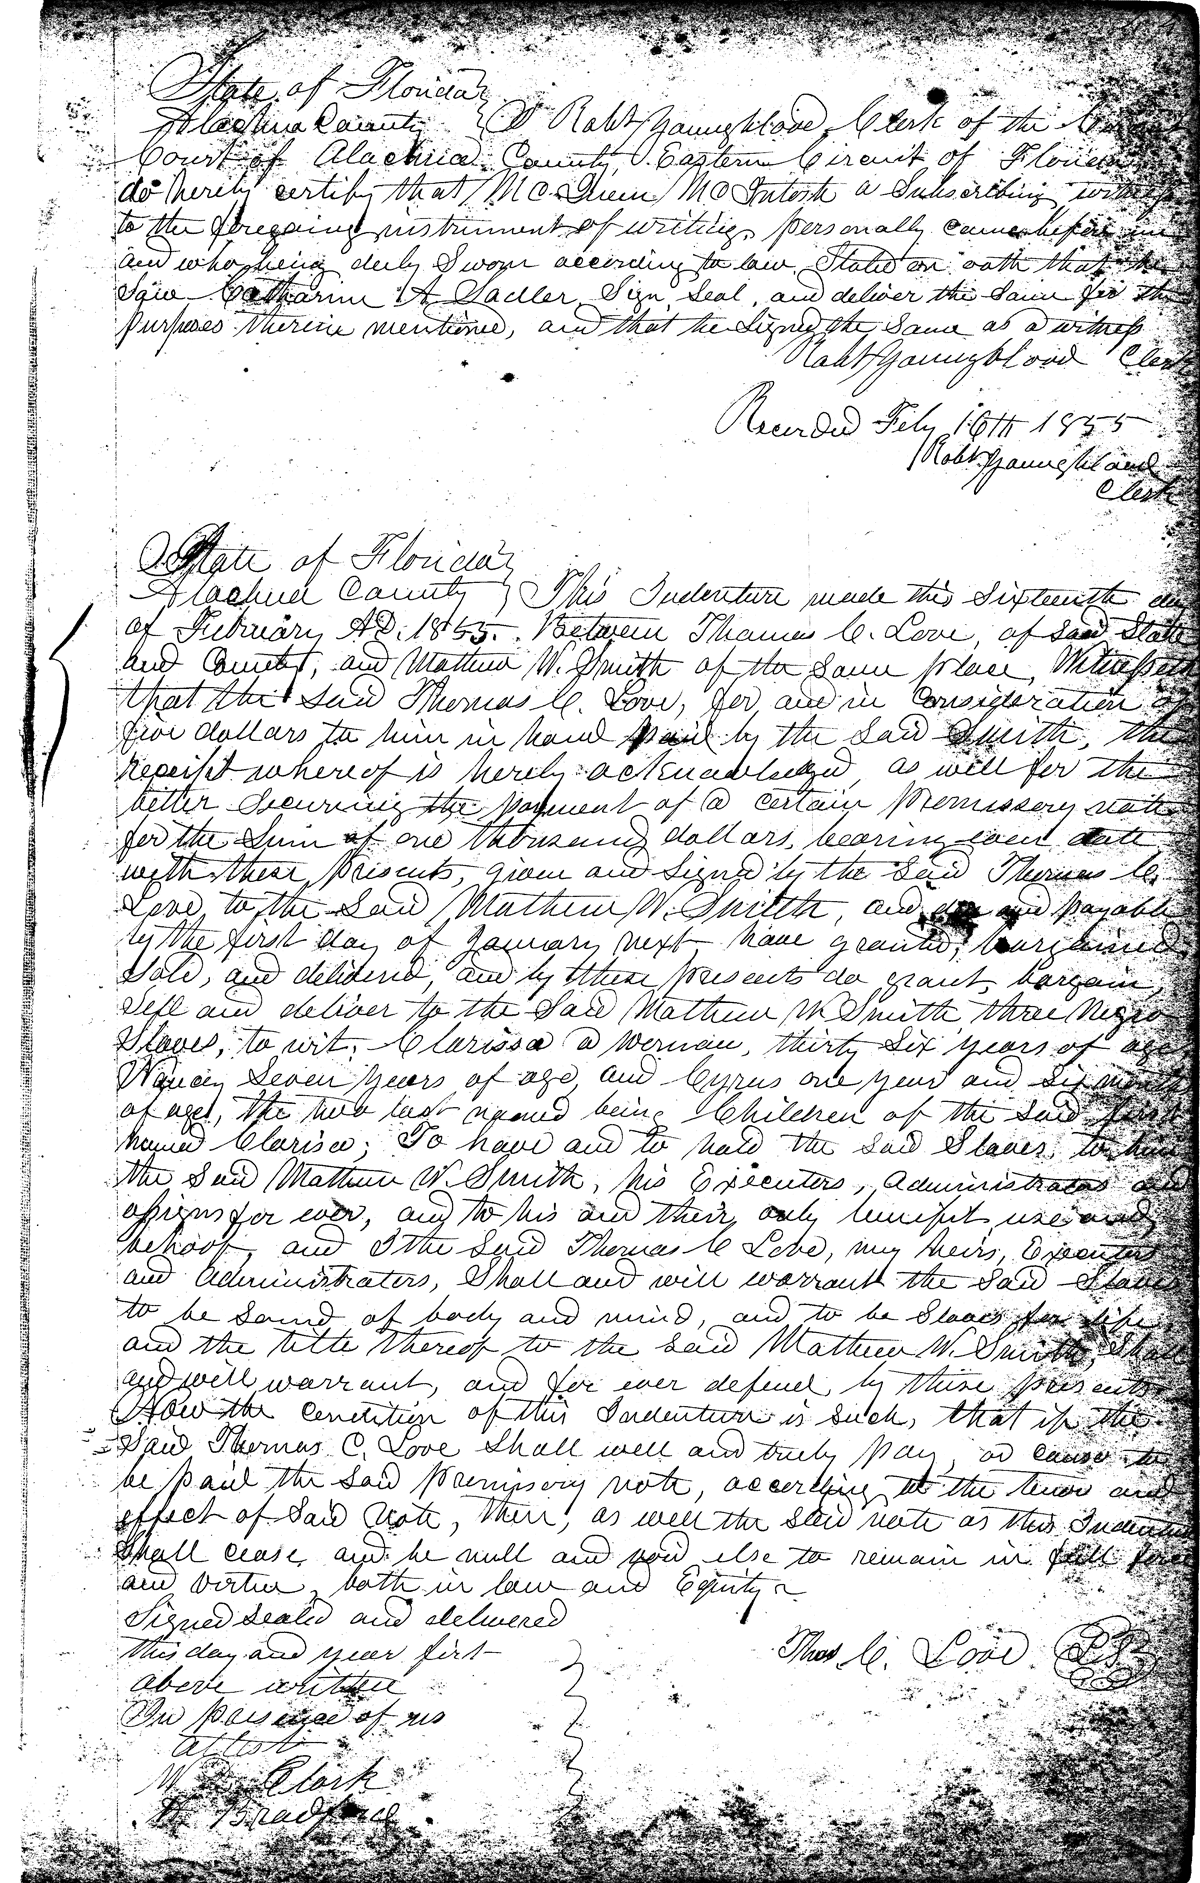 State of Florida
Alachua County I Robt Youngblood Clerk of the Circuit
Court of Alachua County, Eastern Circuit of Florida
do hereby certify that McQueen McIntosh a Subscribing witness
to the foregoing instrument of writing, personally came before me
and who being duly Sworn according to law Stated on oath that he
Saw Catharine A. Sadler, Sign, Seal, and deliver the Same for the
purposes therein mentioned, and that he Signed the Same as a witness
Robt Youngblood Clerk
Recorded Feby 16th 1855
Robt Youngblood
Clerk
State of Florida
Alachua County This Indenture made this Sixteenth day
of February AD. 1855. Between Thomas C. Love, of Said State
and County, and Mathew W. Smith of the Same place, Witnesseth
that the Said Thomas C. Love, for and in Consideration of
five dollars to him in hand paid by the Said Smith, the
receipt whereof is hereby acknowledged, as well for the
better Securing the payment of a certain promissory note
for the Sum of one thousand dollars, bearing even date
with these presents, given and Signed by the Said Thomas C.
Love to the Said Mathew W. Smith, and due and payable
by the first day of January next have granted, bargained
Sold, and delivered, and by these presents do grant, bargain,
Sell and deliver to the Said Mathew W Smith three Negro
Slaves, to wit, Clarissa a woman, thirty Six years of age
Nancy Seven years of age, and Cyrus one year and Six months
of age, the two last named being Children of the Said first
named Clarisa; To have and to hold the Said Slaves to him
the Said Mathew W. Smith, his Executors, Administrators and
assigns for ever, and to his and their only benefit use and
behoof, and I the Said Thomas C Love, my heirs, Executors
and Administrators, Shall and will warrant the Said Slaves
to be Sound of body and mind, and to be Slaves for life,
and the title thereof to the Said Mathew W. Smith, Shall
and will warrant, and for ever defend by these presents
Now the Condition of this Indenture is Such, that if the
Said Thomas C. Love Shall well and truly pay, or cause to
be paid the Said promissory note, according to the tenor and
effect of Said Note, then, as well the Said note as this Indenture
Shall cease and be null and void else to remain in full force
and virtue, both in law and Equity
Signed Sealed and delivered
this day and year first
above written
In presence of us
Attest
Thos C. Love LS
W Clark
Bradford